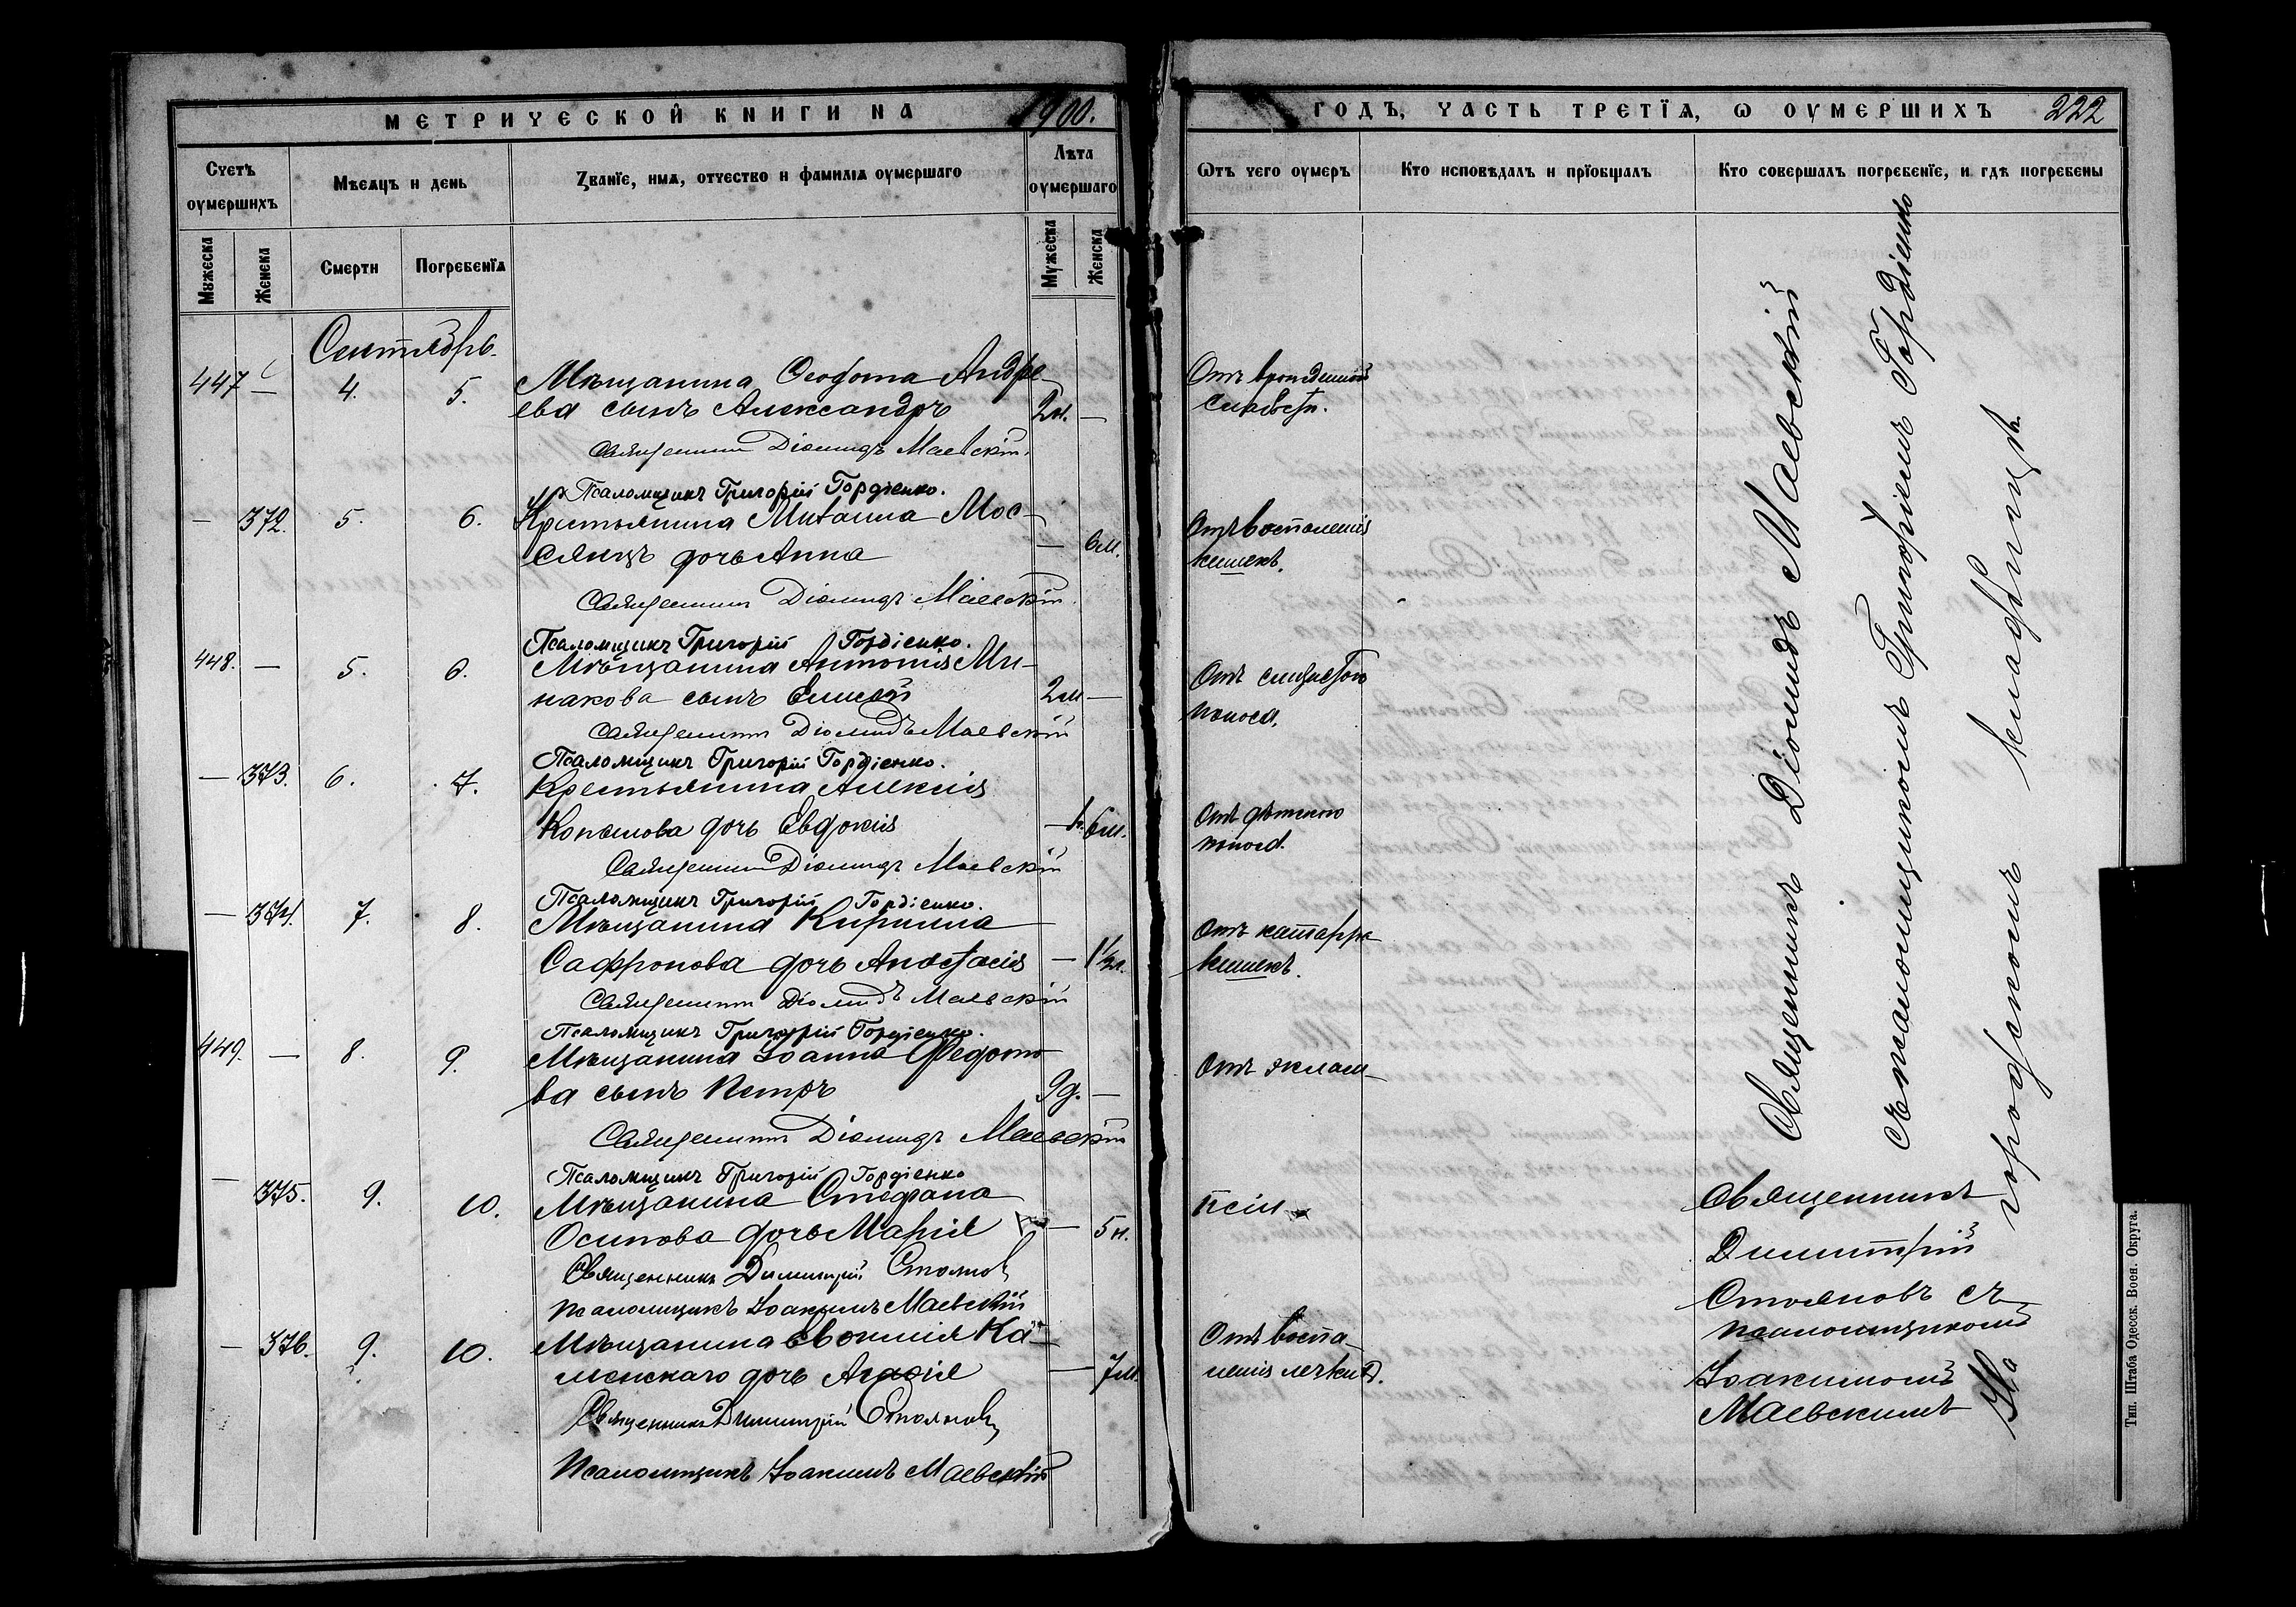 МЕТРИЧЕСКОЙ КНИГИ НА 1900. ГОДЪ, ЧАСТЬ ТРЕТЇѦ, Ѡ ОУМЕРШИХЪ 222
Счетъ оумершихъ
Мѣсѧцъ и день
Званїе, имѧ, отчество и фамилїѧ оумершаго
Лѣта оумершаго
Ѿтъ чего оумеръ
Кто исповѣдалъ и прїобщалъ
Кто совершалъ погребенїе, и гдѣ погребены
Мужеска
Женска
Смерти
Погребенїѧ
Мужеска
Женска
Сентябрь.
447 — 4. 5. Мѣщанина Феодота Андре-
ева сынъ Александръ 2н. —
Отъ врожденной
слабости.
Священникъ Діомидъ Маевскій.
Псаломщикъ Григорій Гордіенко.
— 372. 5. 6. Крестьянина Михаила Мос-
Отъ воспаленія
сянцъ дочь Анна — 6м.
кишекъ.
Священникъ Діомидъ Маевскій.
Псаломщикъ Григорій Гордіенко.
448. — 5. 6. Мѣщанина Антонія Ми-
Отъ слизистого
накова сынъ Елисей 2м —
поноса.
Священникъ Діомидъ Маевскій
Псаломщикъ Григорій Гордіенко.
— 373. 6. 7. Крестьянина Алексія
Копылова дочь Евдокія — 6м.
Отъ дѣтского
поноса.
Священникъ Діомидъ Маевскій
Псаломщикъ Григорій Гордіенко.
— 374. 7. 8. Мѣщанина Кирилла
Отъ катарра
Сафронова дочь Анастасія — 1½г.
кишекъ.
Священникъ Діомидъ Маевскій
Псаломщикъ Григорій Гордіенко.
449. — 8. 9. Мѣщанина Іоанна Федото-
Отъ эклам-
ва сынъ Петръ 9д. —
Священникъ Діомидъ Маевскій
Псаломщикъ Григорій Гордіенко
— 375. 9. 10. Мѣщанина Стефана
псіи
Осипова дочь Марія — 5н.
Священникъ Димитрій Стояновъ
Псаломщикъ Іоакимъ Маевскій
— 376. 9. 10. Мѣщанина Евфимія Ка-
Отъ воспа-
менскаго дочь Агафія — 7м.
ленія легкихъ.
Священникъ Димитрій Стояновъ
Псаломщикъ Іоакимъ Маевскій
Священникъ Діомидъ Маевскій
съ псаломщикомъ Григоріемъ Гордіенко
На городскомъ кладбищѣ.
Священникъ
Димитрій
Стояновъ съ
псаломщикомъ
Іоакимомъ
Маевскимъ
Тип. Штаба Одесск. Воен. Округа.